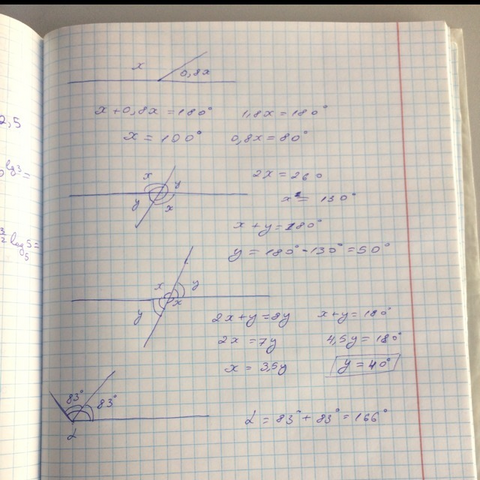 x 0,8x
x+0,8x=180° 1,8x=180°
x=100° 0,8x=80°
2,5
lg3=
x y
y x
2x=260
x=130°
x+y=180°
y=180°-130°=50°
3/2 log5 5=
x y
y x
2x+y=8y x+y=180°
2x=7y 4,5y=180°
x=3,5y y=40°
83° 83°
α
α=83°+83°=166°